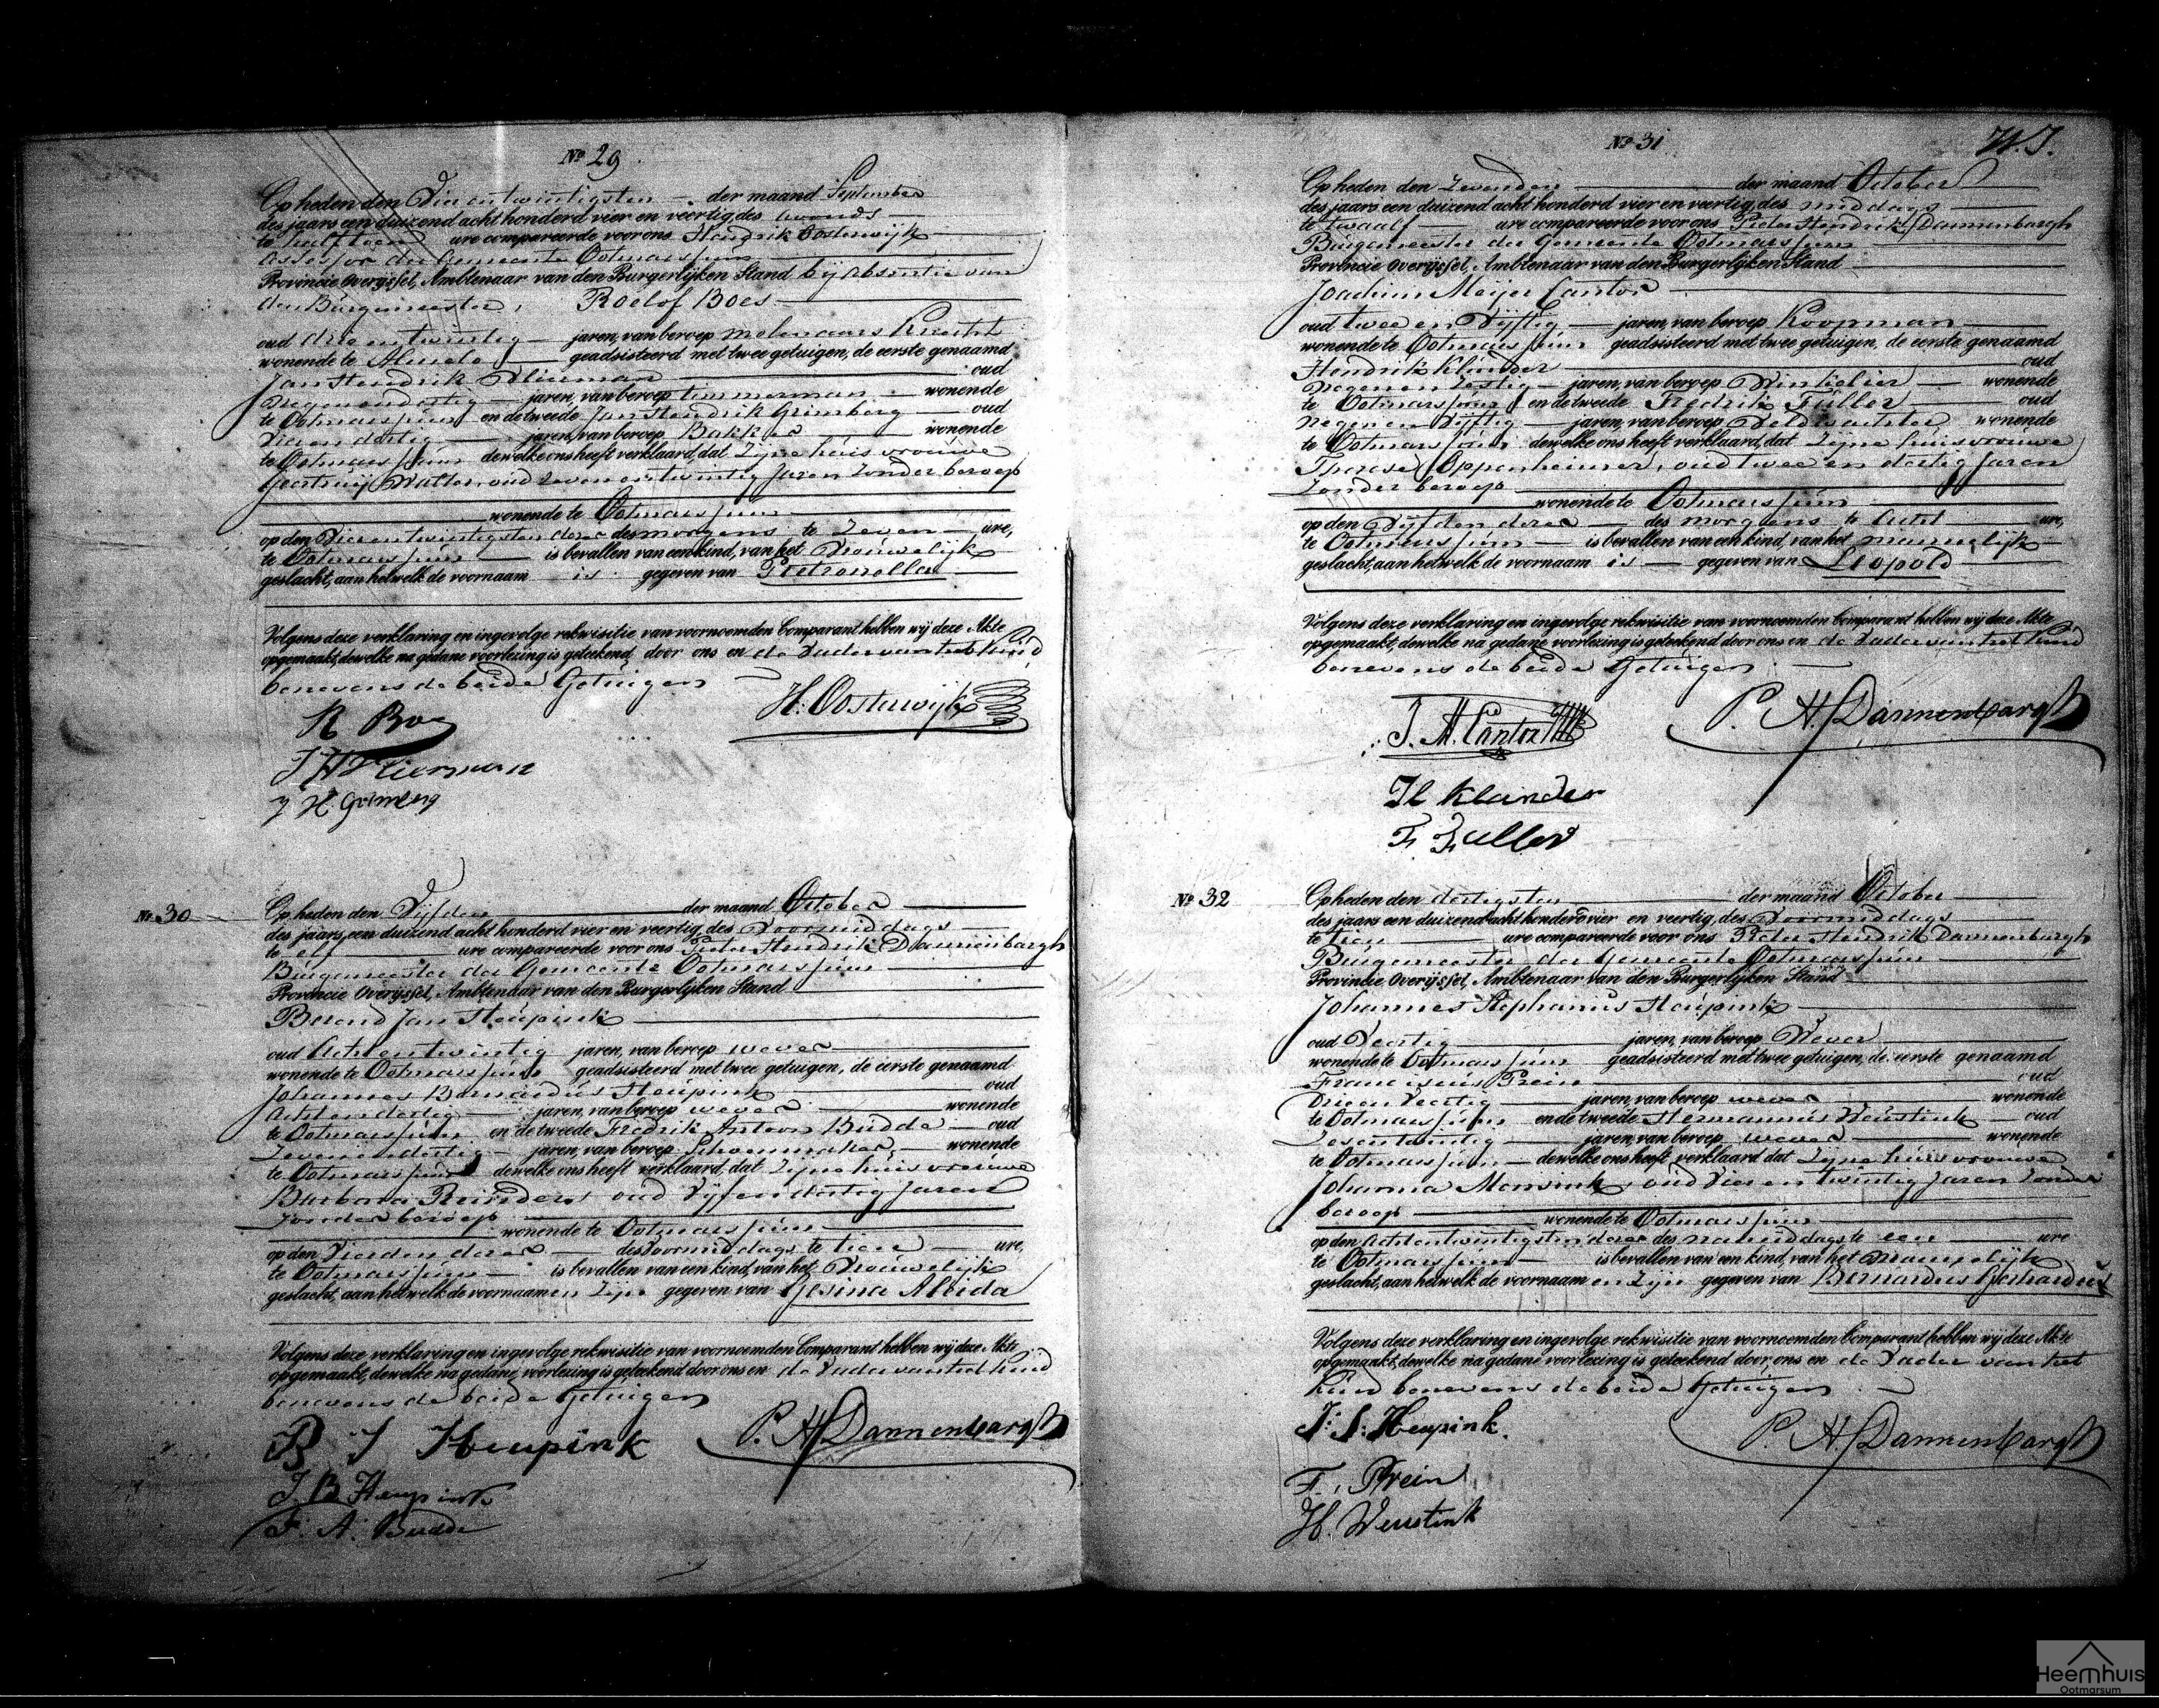 No 29
Op heden den Vierentwintigsten der maand September
des jaars een duizend acht honderd vier en veertig des avonds
te half tien ure compareerde voor ons Hendrik Oosterwijk
Assessor der Gemeente Ootmarssum
Provincie Overijssel, Ambtenaar van den Burgerlijken Stand bij absentie van
den Burgemeester, Roelof Boes
oud drie entwintig jaren, van beroep molenaars Knecht
wonende te Almelo geadsisteerd met twee getuigen, de eerste genaamd
Jan Hendrik oud
negenendertig jaren, van beroep timmerman wonende
te Ootmarssum en de tweede Jan Hendrik Grimberg oud
Vierendertig jaren, van beroep Bakker wonende
te Ootmarssum dewelke ons heeft verklaard, dat Zijne huisvrouwe
Geertruij oud Zevenentwintig Jaren Zonder beroep
wonende te Ootmarssum
op den Vierentwintigsten dezer des morgens te Zeven ure,
te Ootmarssum is bevallen van een kind, van het Vrouwelijk
geslacht, aan hetwelk de voornaam is gegeven van Pietronella
Volgens deze verklaring en ingevolge rekwisitie van voornoemden Comparant hebben wij deze Akte
opgemaakt, dewelke na gedane voorlezing is geteekend door ons en de Vader van het Kind
benevens de beide Getuigen
H: Oosterwijk
R Boes
J H Grimberg
No 30
Op heden den Vijfden der maand October
des jaars een duizend acht honderd vier en veertig des Voormiddags
te elf ure compareerde voor ons Pieter Hendrik Dannenbargh
Burgemeester der Gemeente Ootmarssum
Provincie Overijssel, Ambtenaar van den Burgerlijken Stand
Berend Jan Heupink
oud Achtentwintig jaren, van beroep wever
wonende te Ootmarssum geadsisteerd met twee getuigen, de eerste genaamd
Johannes Bernardus Heupink oud
Achtendertig jaren, van beroep wever wonende
te Ootmarssum en de tweede Fredrik Antoon Budde oud
Zevenendertig jaren, van beroep Schoenmaker wonende
te Ootmarssum dewelke ons heeft verklaard, dat Zijne huisvrouwe
Barbara Reinders oud Vijfendertig Jaren
Zonder beroep wonende te Ootmarssum
op den Vierden dezer des Voormiddags te tien ure,
te Ootmarssum is bevallen van een kind, van het Vrouwelijk
geslacht, aan hetwelk de voornaamen Zijn gegeven van Gesina Aleida
Volgens deze verklaring en ingevolge rekwisitie van voornoemden Comparant hebben wij deze Akte
opgemaakt, dewelke na gedane voorlezing is geteekend door ons en de Vader van het Kind
benevens de beide Getuigen
P. H. Dannenbargh
B J Heupink
J. B Heupink
F. A. Budde
No 31
Op heden den Zevenden der maand October
des jaars een duizend acht honderd vier en veertig, des middags
te twaalf ure compareerde voor ons Pieter Hendrik Dannenbargh
Burgemeester der Gemeente Ootmarssum
Provincie Overijssel, Ambtenaar van den Burgerlijken Stand
Joachim Meijer Cantor
oud twee en Vijftig jaren, van beroep Koopman
wonende te Ootmarssum geadsisteerd met twee getuigen, de eerste genaamd
Hendrik Klander oud
negenen Zestig jaren, van beroep Winkelier wonende
te Ootmarssum en de tweede Fredrik Fuller oud
negenen Vijftig jaren, van beroep Veldwachter wonende
te Ootmarssum dewelke ons heeft verklaard, dat Zijne huisvrouwe
Therese Oppenheimer, oud twee en dertig Jaren
Zonder beroep
wonende te Ootmarssum
op den Vijfden dezer des morgens te Acht ure,
te Ootmarssum is bevallen van een kind, van het mannelijk
geslacht, aan hetwelk de voornaam is gegeven van Leopold
Volgens deze verklaring en ingevolge rekwisitie van voornoemden Comparant hebben wij deze Akte
opgemaakt, dewelke na gedane voorlezing is geteekend door ons en de Vader van het Kind
benevens de beide Getuigen
P. H. Dannenbargh
J. M. Cantor
H Klander
F. Fuller
No 32
Op heden den dertigsten der maand October
des jaars een duizend acht honderd vier en veertig, des Voormiddags
te tien ure compareerde voor ons Pieter Hendrik Dannenbargh
Burgemeester der Gemeente Ootmarssum
Provincie Overijssel, Ambtenaar van den Burgerlijken Stand
Johannes Stephanus Heupink
oud Veertig jaren, van beroep Wever
wonende te Ootmarssum geadsisteerd met twee getuigen, de eerste genaamd
Franciscus Prein oud
Drieen Veertig jaren, van beroep wever wonende
te Ootmarssum en de tweede Hermannus Weustink oud
jaren, van beroep wever wonende
te Ootmarssum dewelke ons heeft verklaard dat Zijne huisvrouwe
Johanna Mensink, oud Vieren twintig Jaren Zonder
beroep wonende te Ootmarssum
op den Achtentwintigsten dezer des namiddags te een ure
te Ootmarssum is bevallen van een kind, van het Mannelijk
geslacht, aan hetwelk de voornaamen Zijn gegeven van Bernardus Gerhardus
Volgens deze verklaring en ingevolge rekwisitie van voornoemden Comparant hebben wij deze Akte
opgemaakt, dewelke na gedane voorlezing is geteekend door ons en de Vader van het
Kind benevens de beide Getuigen
P. H. Dannenbargh
J: S: Heupink.
F. Prein
H. Weustink
Heemhuis
Ootmarsum